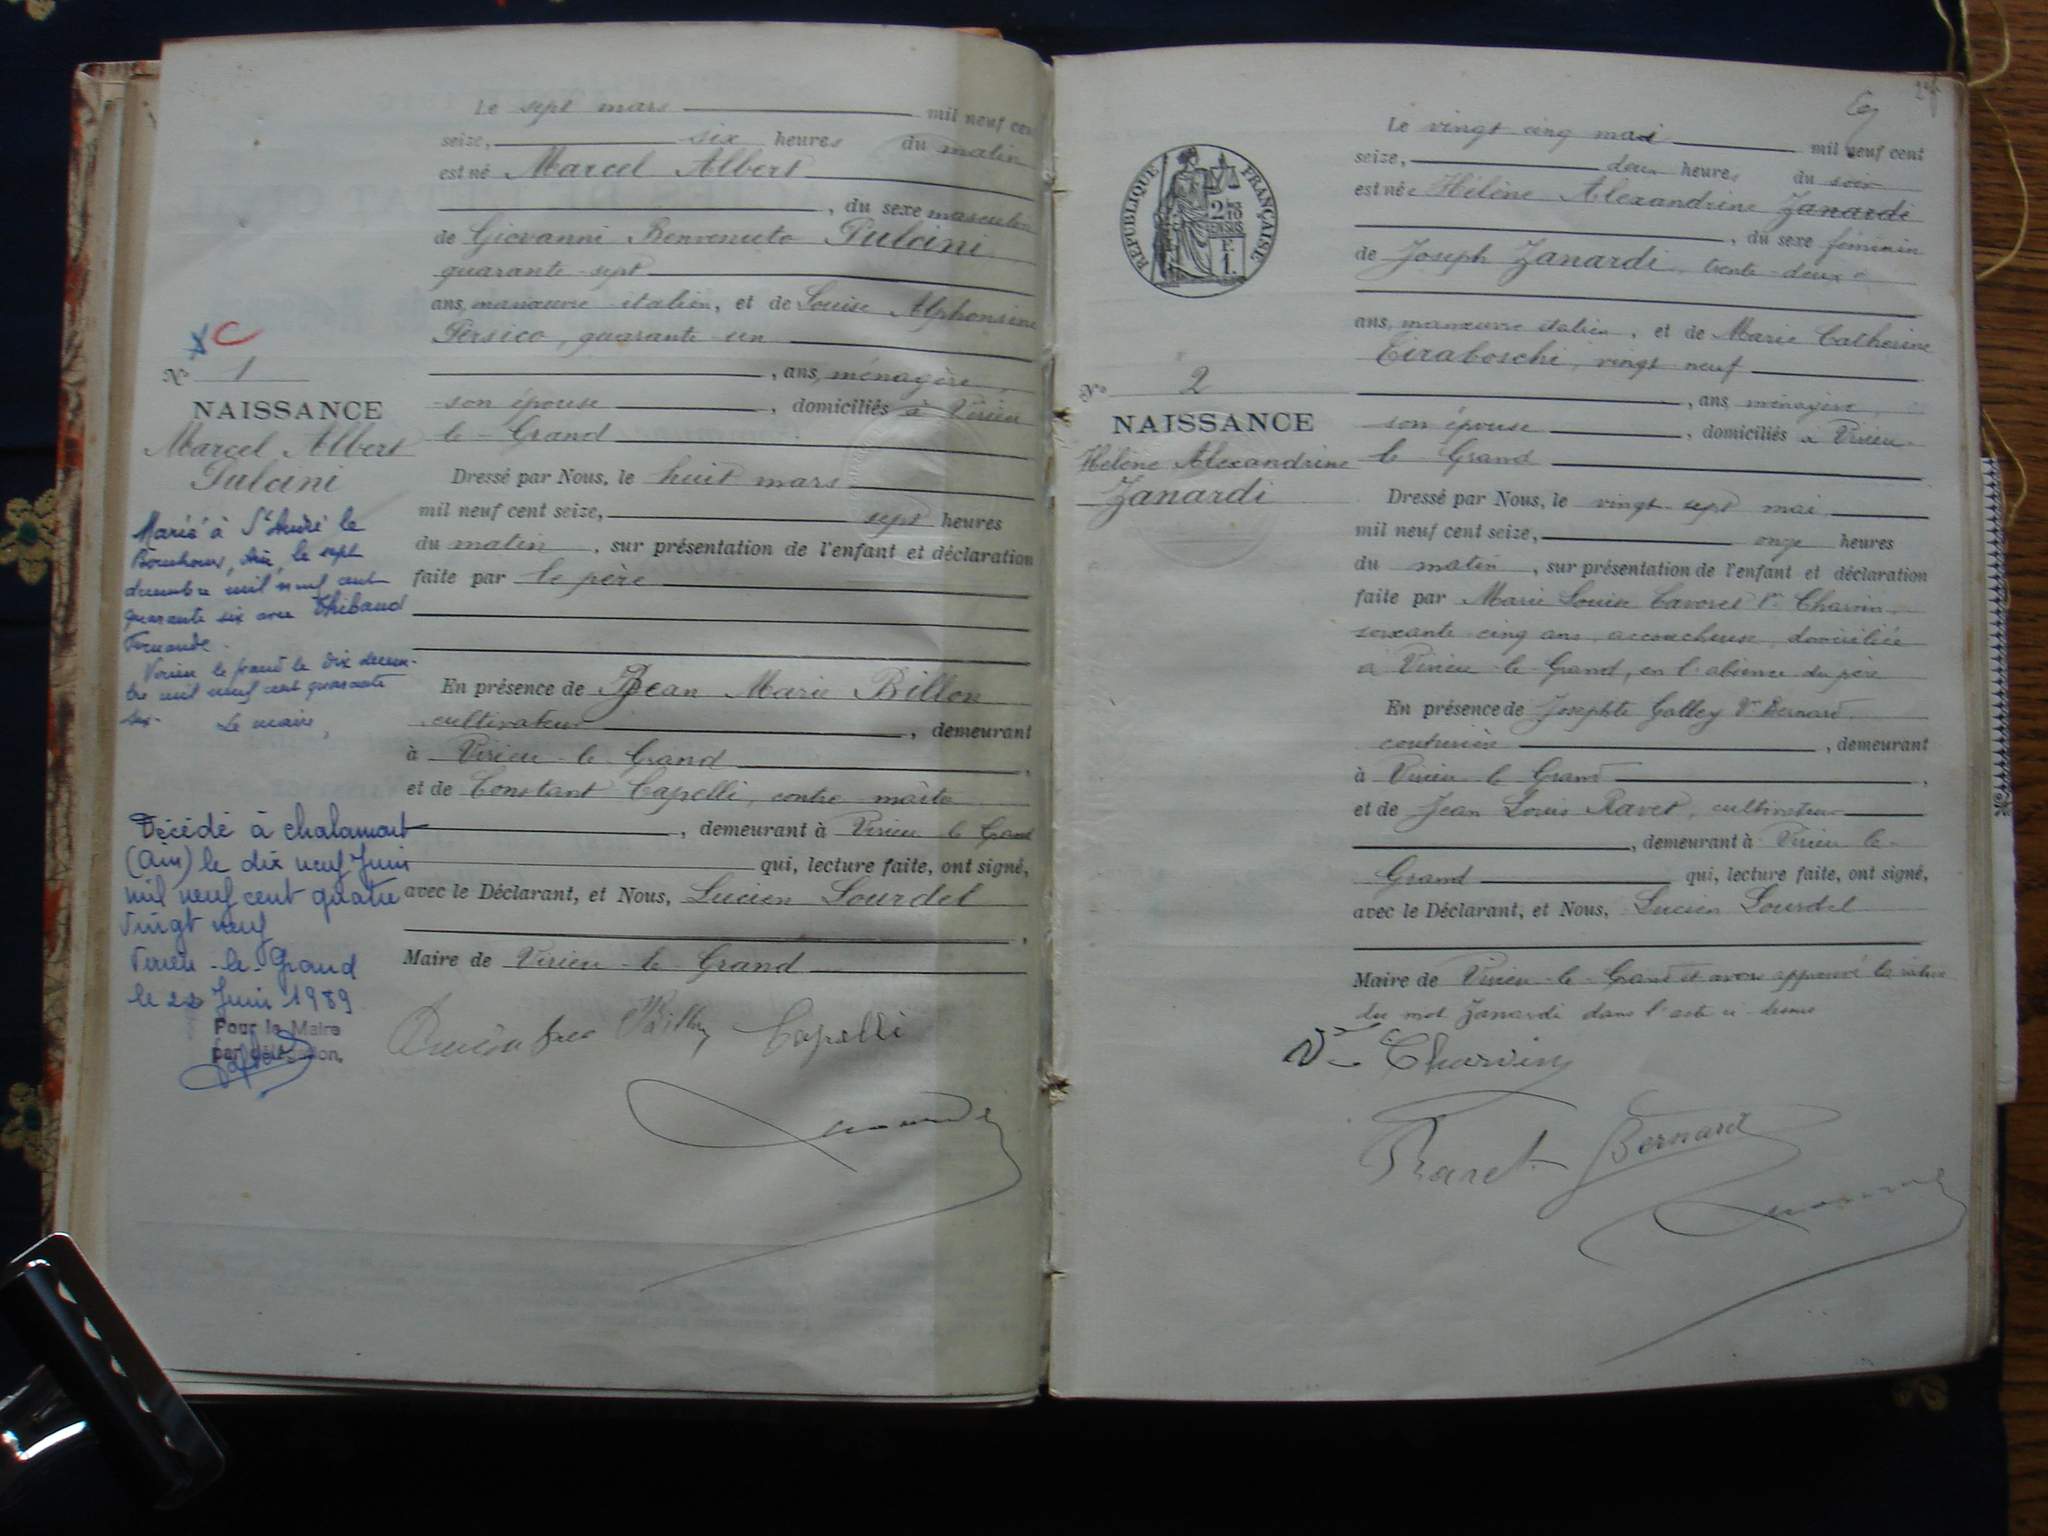 Le sept mars mil neuf cen
seize, six heures du matin
est né Marcel Albert
, du sexe masculin
de Giovanni Benvenuto Pulcini
quarante-sept
ans, manœuvre italien, et de Louise Alphonsine
Persico, quarante un
, ans, ménagère,
son épouse , domiciliés à Virieu
le-Grand
C
N° 1
NAISSANCE
Marcel Albert
Pulcini
Marié à St André le
Bouchoux, Ain, le sept
decembre mil neuf cent
quarante six avec Thibaud
Fernande.
Virieu le grand le dix decem-
bre mil neuf cent quarante
six. Le maire,
Dressé par Nous, le huit mars
mil neuf cent seize, sept heures
du matin , sur présentation de l'enfant et déclaration
faite par le père
En présence de Jean Marie Billon
cultivateur , demeurant
à Virieu-le-Grand ,
et de Constant Capelli, contre maître
, demeurant à Virieu le Grand
qui, lecture faite, ont signé,
avec le Déclarant, et Nous, Lucien Lourdel
,
Maire de Virieu-le-Grand
Décédé à chalamont
(Ain) le dix neuf Juin
mil neuf cent quatre
vingt neuf
Virieu-le-Grand
le 22 Juin 1989
Pour le Maire
par délégation,
Capelli
24
RÉPUBLIQUE FRANÇAISE
Le vingt cinq mai mil neuf cent
seize, deux heures du soir
est née Hélène Alexandrine Zanardi
, du sexe féminin
de Joseph Zanardi, trente-deux
ans, manœuvre italien, et de Marie Catherine
Tiraboschi, vingt neuf
, ans, ménagère,
son épouse , domiciliés à Virieu-
le Grand
N° 2
NAISSANCE
Hélène Alexandrine
Zanardi
Dressé par Nous, le vingt-sept mai
mil neuf cent seize, onze heures
du matin , sur présentation de l'enfant et déclaration
faite par Marie Louise Cavoret Ve Charvin
soixante cinq ans, accoucheuse, domiciliée
à Virieu-le-Grand, en l'absence du père
En présence de Josephte Golley Ve Bernard
couturière , demeurant
à Virieu le Grand ,
et de Jean Louis Ravet, cultivateur
, demeurant à Virieu le-
Grand qui, lecture faite, ont signé,
avec le Déclarant, et Nous, Lucien Lourdel
Maire de Virieu-le-Grand et avons approuvé la rature
du mot Zanardi dans l'acte ci-dessus
Ve Charvin
Ravet Bernard